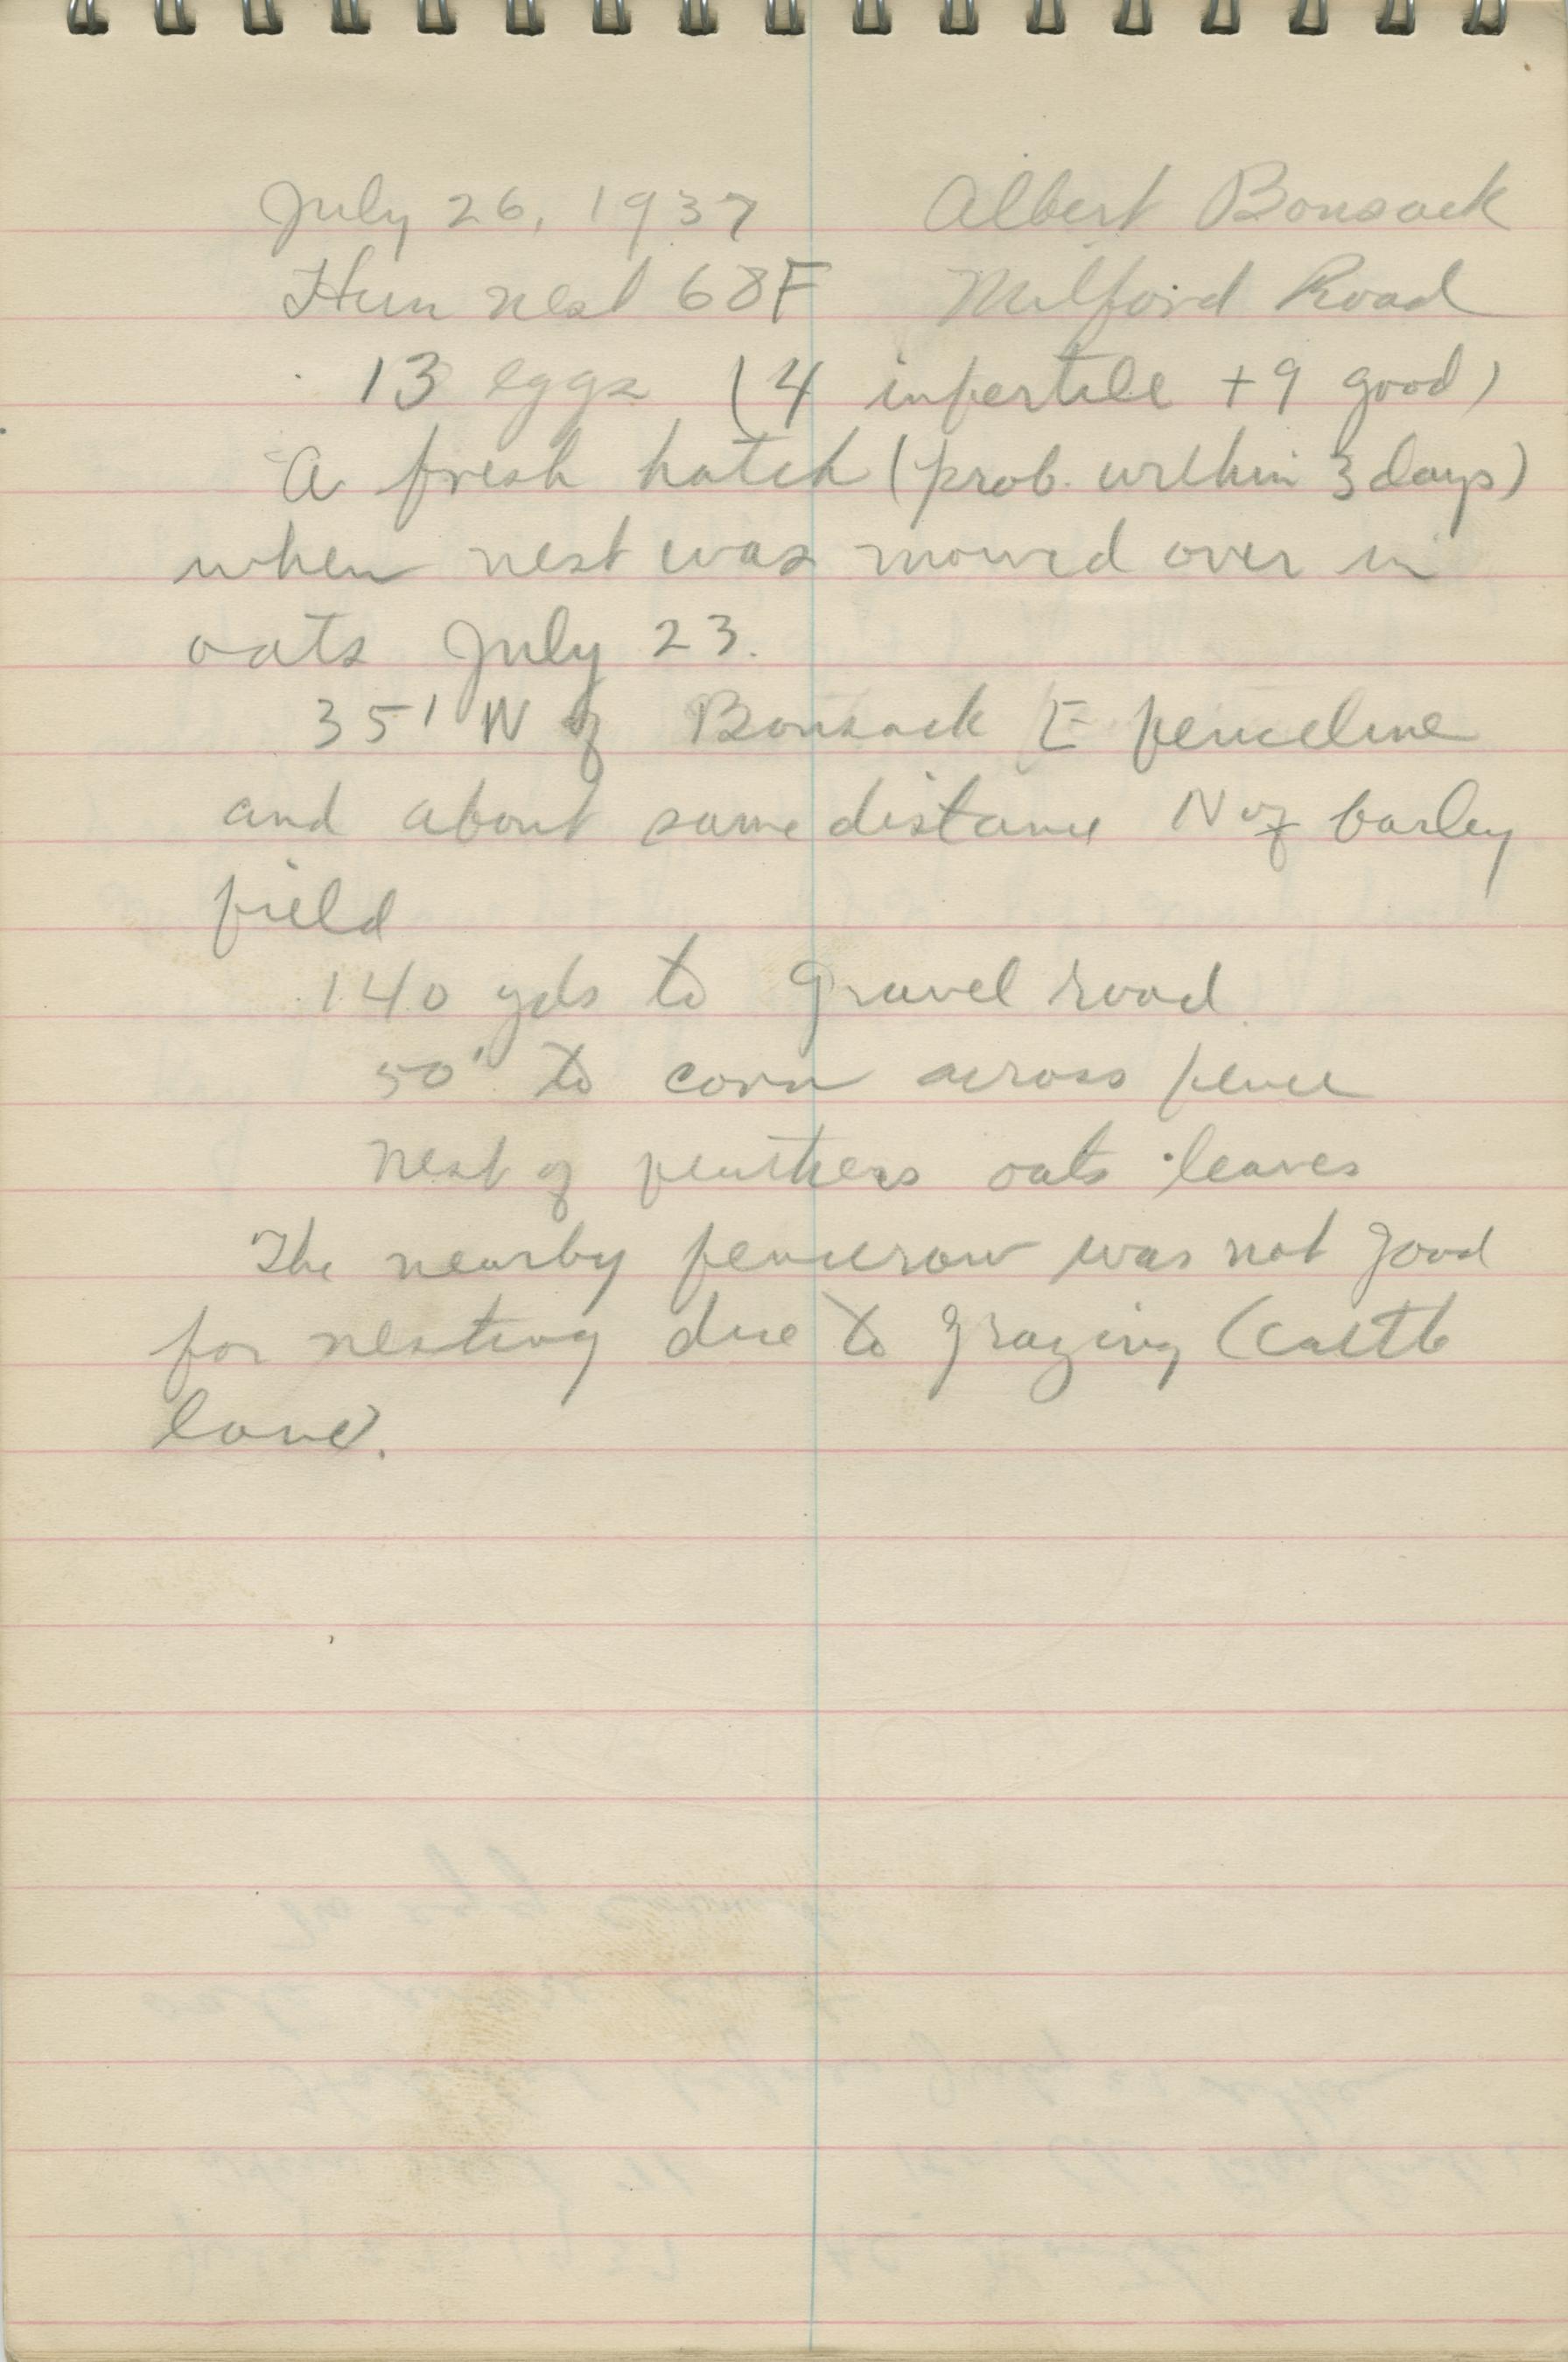 July 26, 1937 Albert Bonsack
Hun nest 68F Milford Road
13 eggs (4 infertile + 9 good)
A fresh hatch (prob. within 3 days)
when nest was mowed over in
oats July 23.
35' N of Bonsack E fenceline
and about same distance N of barley
field
140 yds to gravel road
50' to corn across fence
Nest of feathers oats leaves
The nearby fencerow was not good
for nesting due to grazing (cattle
lane).